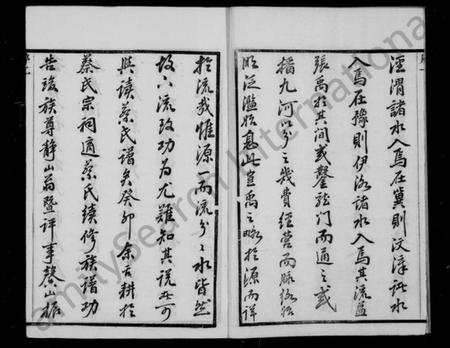 涇渭諸水入焉在冀則汶漳諸水
入焉在豫則伊洛諸水入焉其流益
張禹於其間或鑿龍門而通之或
播九河以分之幾費經營而脈絡
明泛濫始息此豈禹之略於源而詳
於流哉惟源一而流分分水皆然
故八流攻功為尤難知其說者可
與讀蔡氏譜矣癸卯余云耕於
蔡氏宗祠適蔡氏續修族譜功
告竣族尊靜山翁暨評事馨山